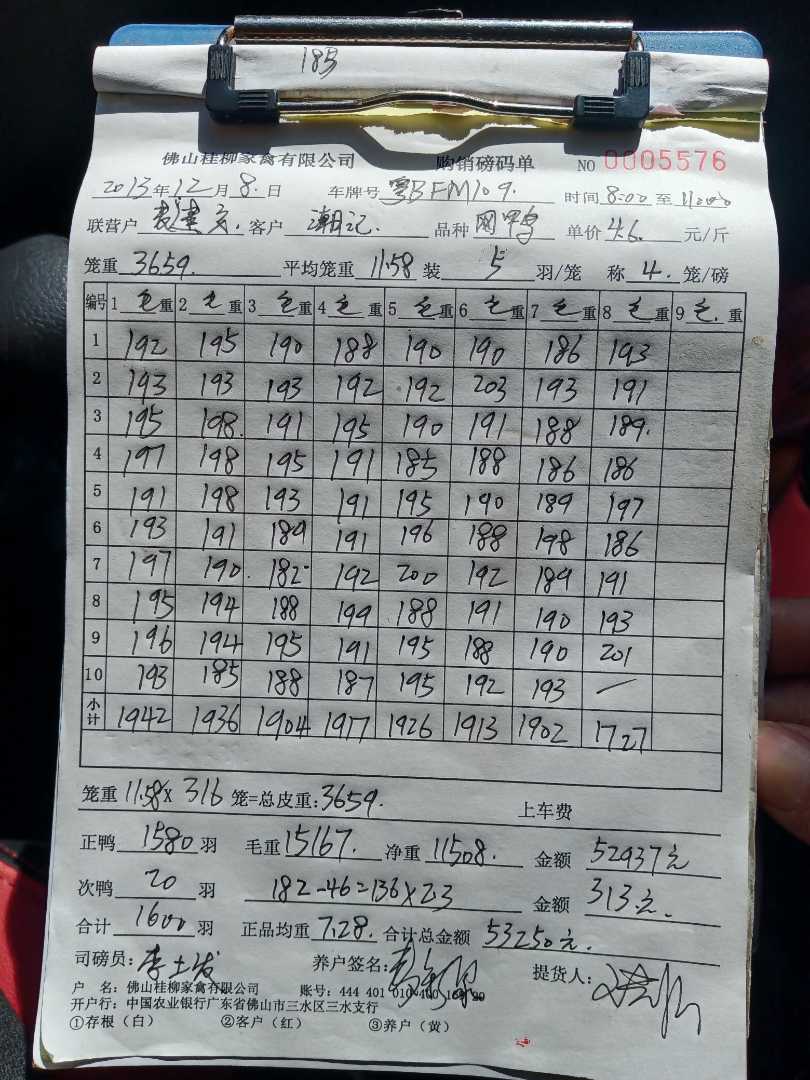 185
佛山桂柳家禽有限公司 购销磅码单 NO 0005576
2013年12月8.日 车牌号 粤BFM109. 时间8:00至11:00
联营户 客户 潮记. 品种 网鸭 单价4.6.元/斤
笼重 3659. 平均笼重 11.58 装 5 羽/笼 称 4. 笼/磅
编号 1 毛 重 2 毛 重 3 毛 重 4 毛 重 5 毛 重 6 毛 重 7 毛 重 8 毛 重 9 毛. 重
1 192 195 190 188 190 190 186 193
2 193 193 193 192 192 203 193 191
3 195 198. 191 195 190 191 188 189.
4 197 198 195 191 185 188 186 186
5 191 198 193 191 195 190 189 197
6 193 191 189 191 196 188 198 186
7 197 190 182 192 200 192 189 191
8 195 194 188 199 188 191 190 193
9 196 194 195 191 195 188 190 201
10 193 185 188 187 195 192 193 —
小计 1942 1936 1904 1917 1926 1913 1902 1727
笼重 11.58 × 316 笼=总皮重: 3659. 上车费
正鸭 1580 羽 毛重 15167. 净重 11508. 金额 52937元
次鸭 20 羽 182-46=136×2.3 金额 313元.
合计 1600 羽 正品均重 7.28. 合计总金额 53250元.
司磅员: 养户签名: 提货人:
户 名: 佛山桂柳家禽有限公司 账号: 444 401 010 400
开户行: 中国农业银行广东省佛山市三水区三水支行
①存根（白） ②客户（红） ③养户（黄）